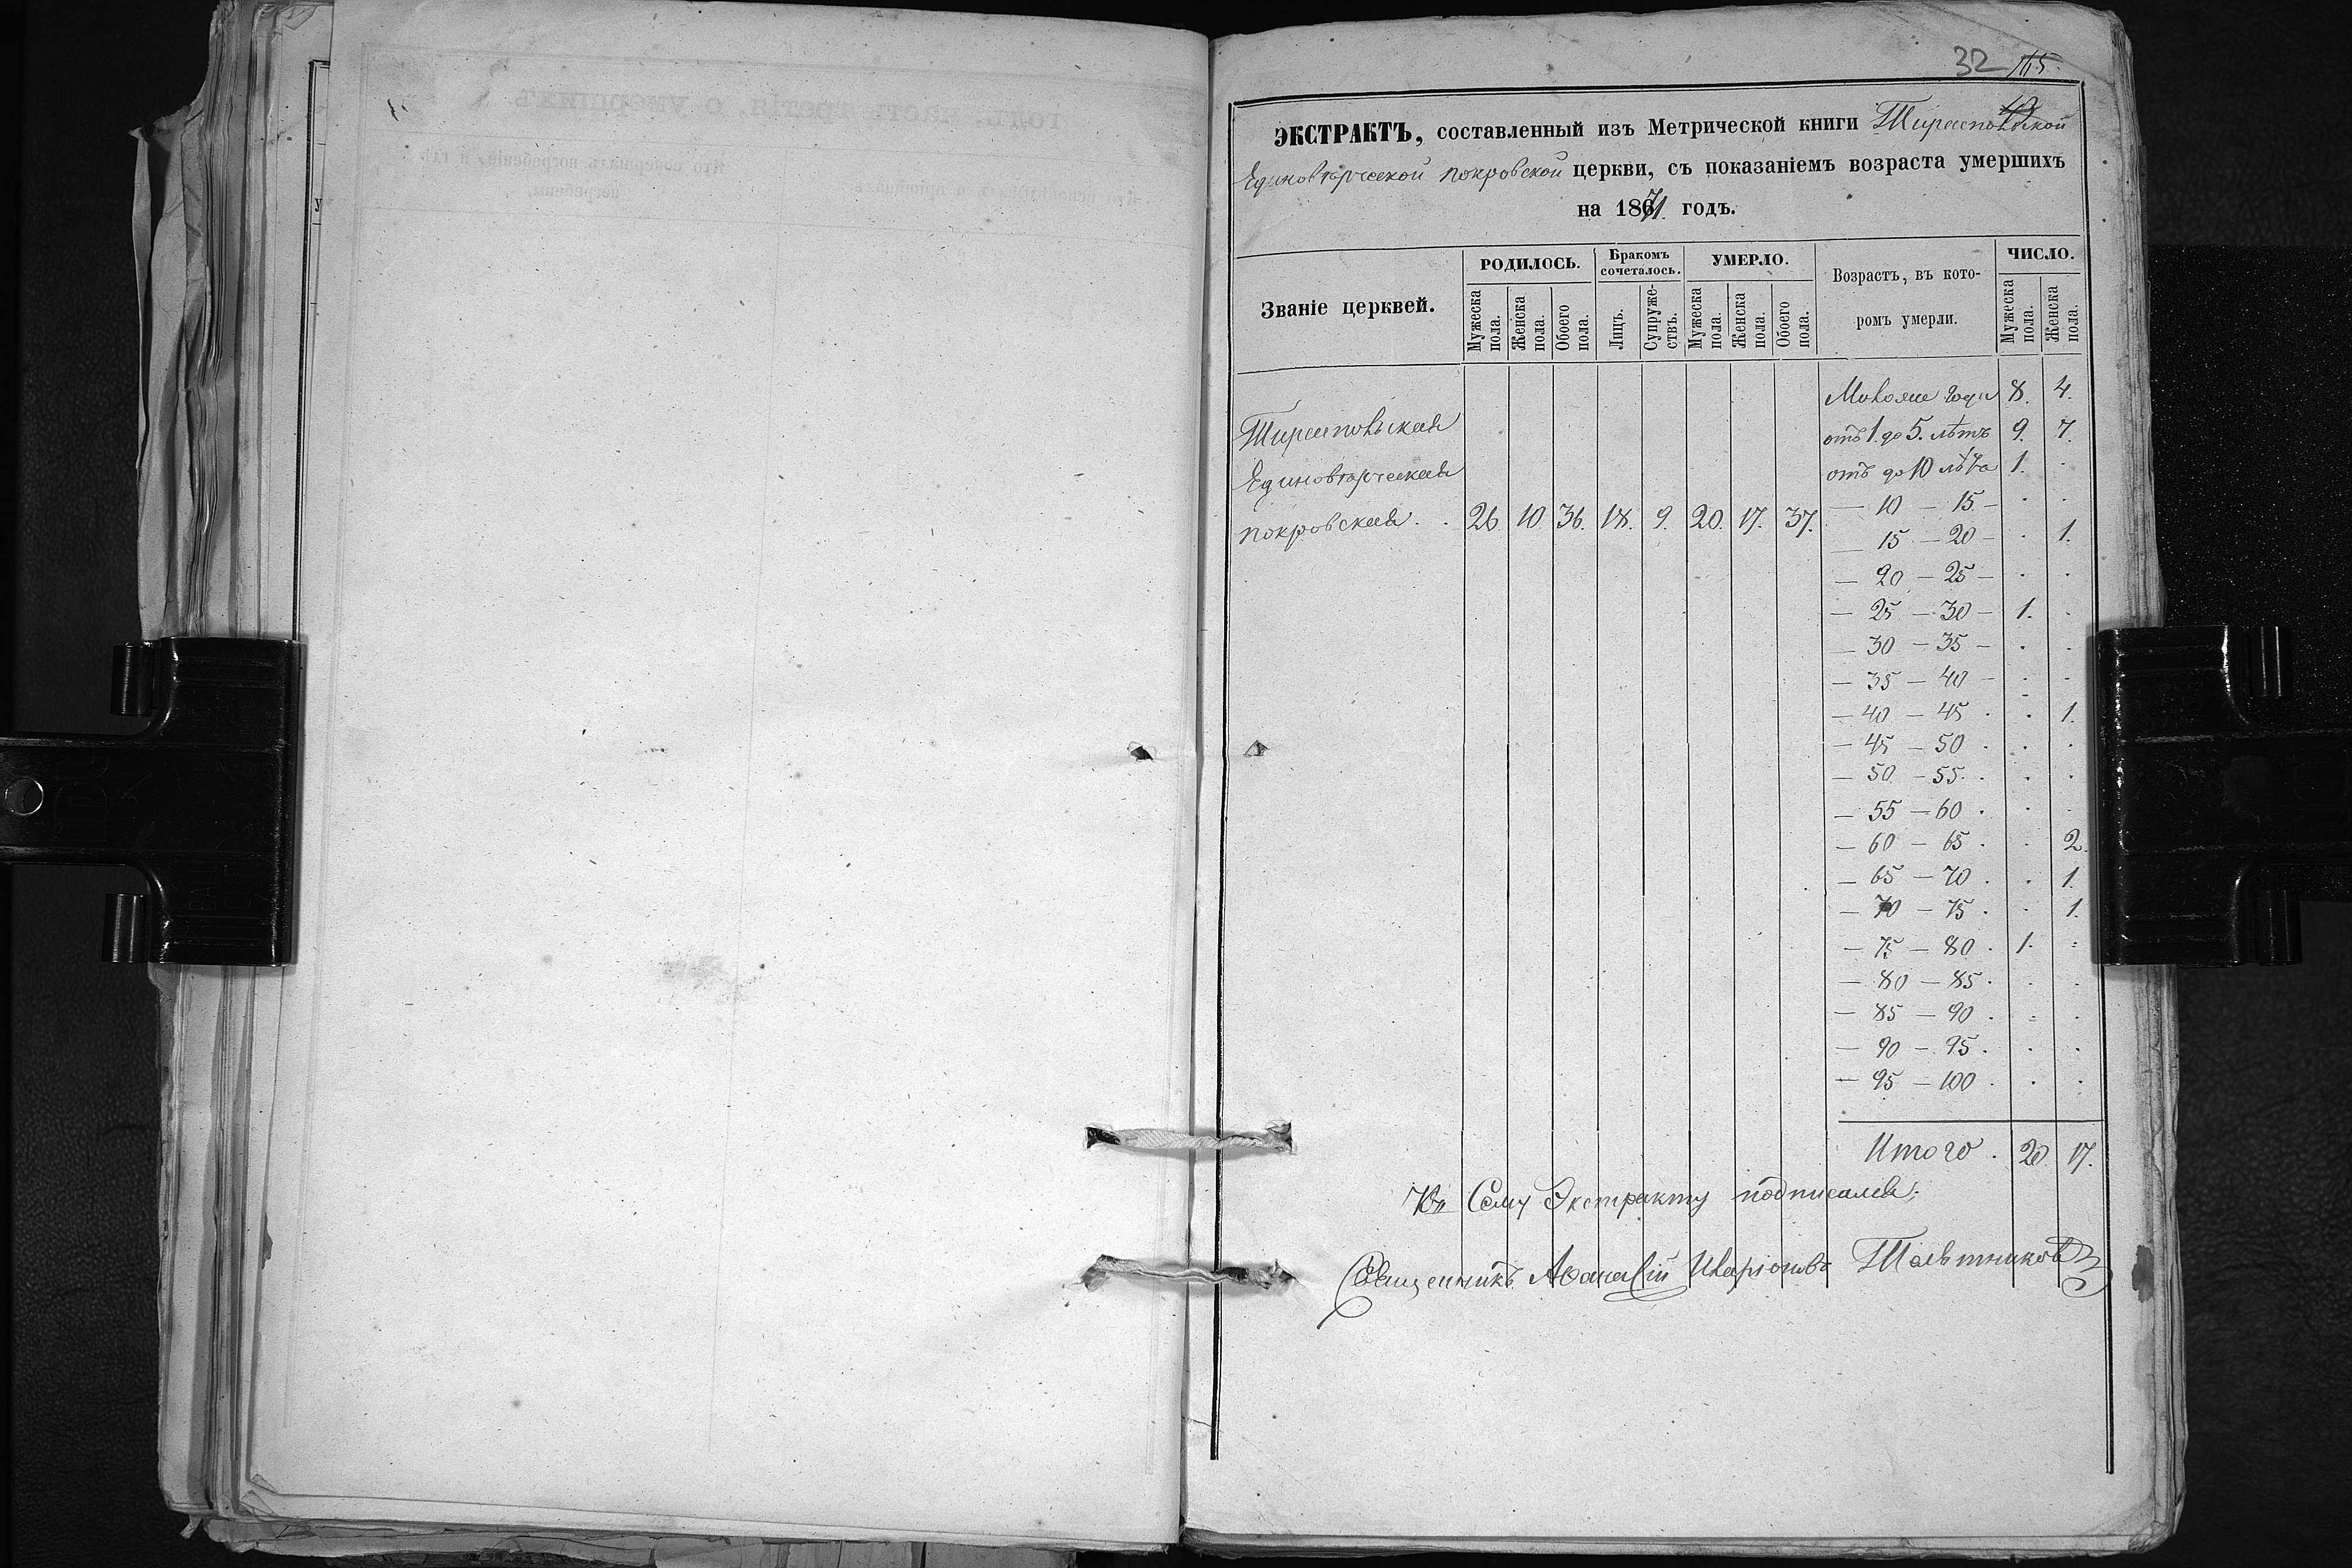 32 115.
49
ЭКСТРАКТЪ, составленный изъ Метрической книги Тираспольской
Единовѣрческой покровской церкви, съ показаніемъ возраста умершихъ
на 1871 годъ.
Званіе церквей. РОДИЛОСЬ. Бракомъ сочеталось. УМЕРЛО. Возрастъ, въ кото- ромъ умерли. ЧИСЛО.
Мужеска пола. Женска пола. Обоего пола. Лицъ. Супруже- ствъ. Мужеска пола. Женска пола. Обоего пола. Мужеска пола. Женска пола.
8. 4.
Тираспольская
отъ 1. до 5. лѣтъ 9. 7.
Единовѣрческая
отъ до 10 1. .
— 10 — 15. — . .
покровская . . 26. 10 36. 18. 9. 20. 17. 37.
— 15 — 20 — . 1.
— 20 — 25 — . .
— 25 — 30 — 1. .
— 30 — 35 — . .
— 35 — 40 — . .
— 40 — 45 . . 1.
— 45 — 50 . . .
— 50 — 55 . . .
— 55 — 60 . . .
— 60 — 65 . . 2.
— 65 — 70 . . 1.
— 70 — 75 . . 1.
— 75 — 80 . 1. .
— 80 — 85 . . .
— 85 — 90 . . .
— 90 — 95 . . .
— 95 — 100 . . .
Итого . 20. 17.
Къ Сему Экстракту подписался:
Священникъ Аѳанасій Иларіоновъ